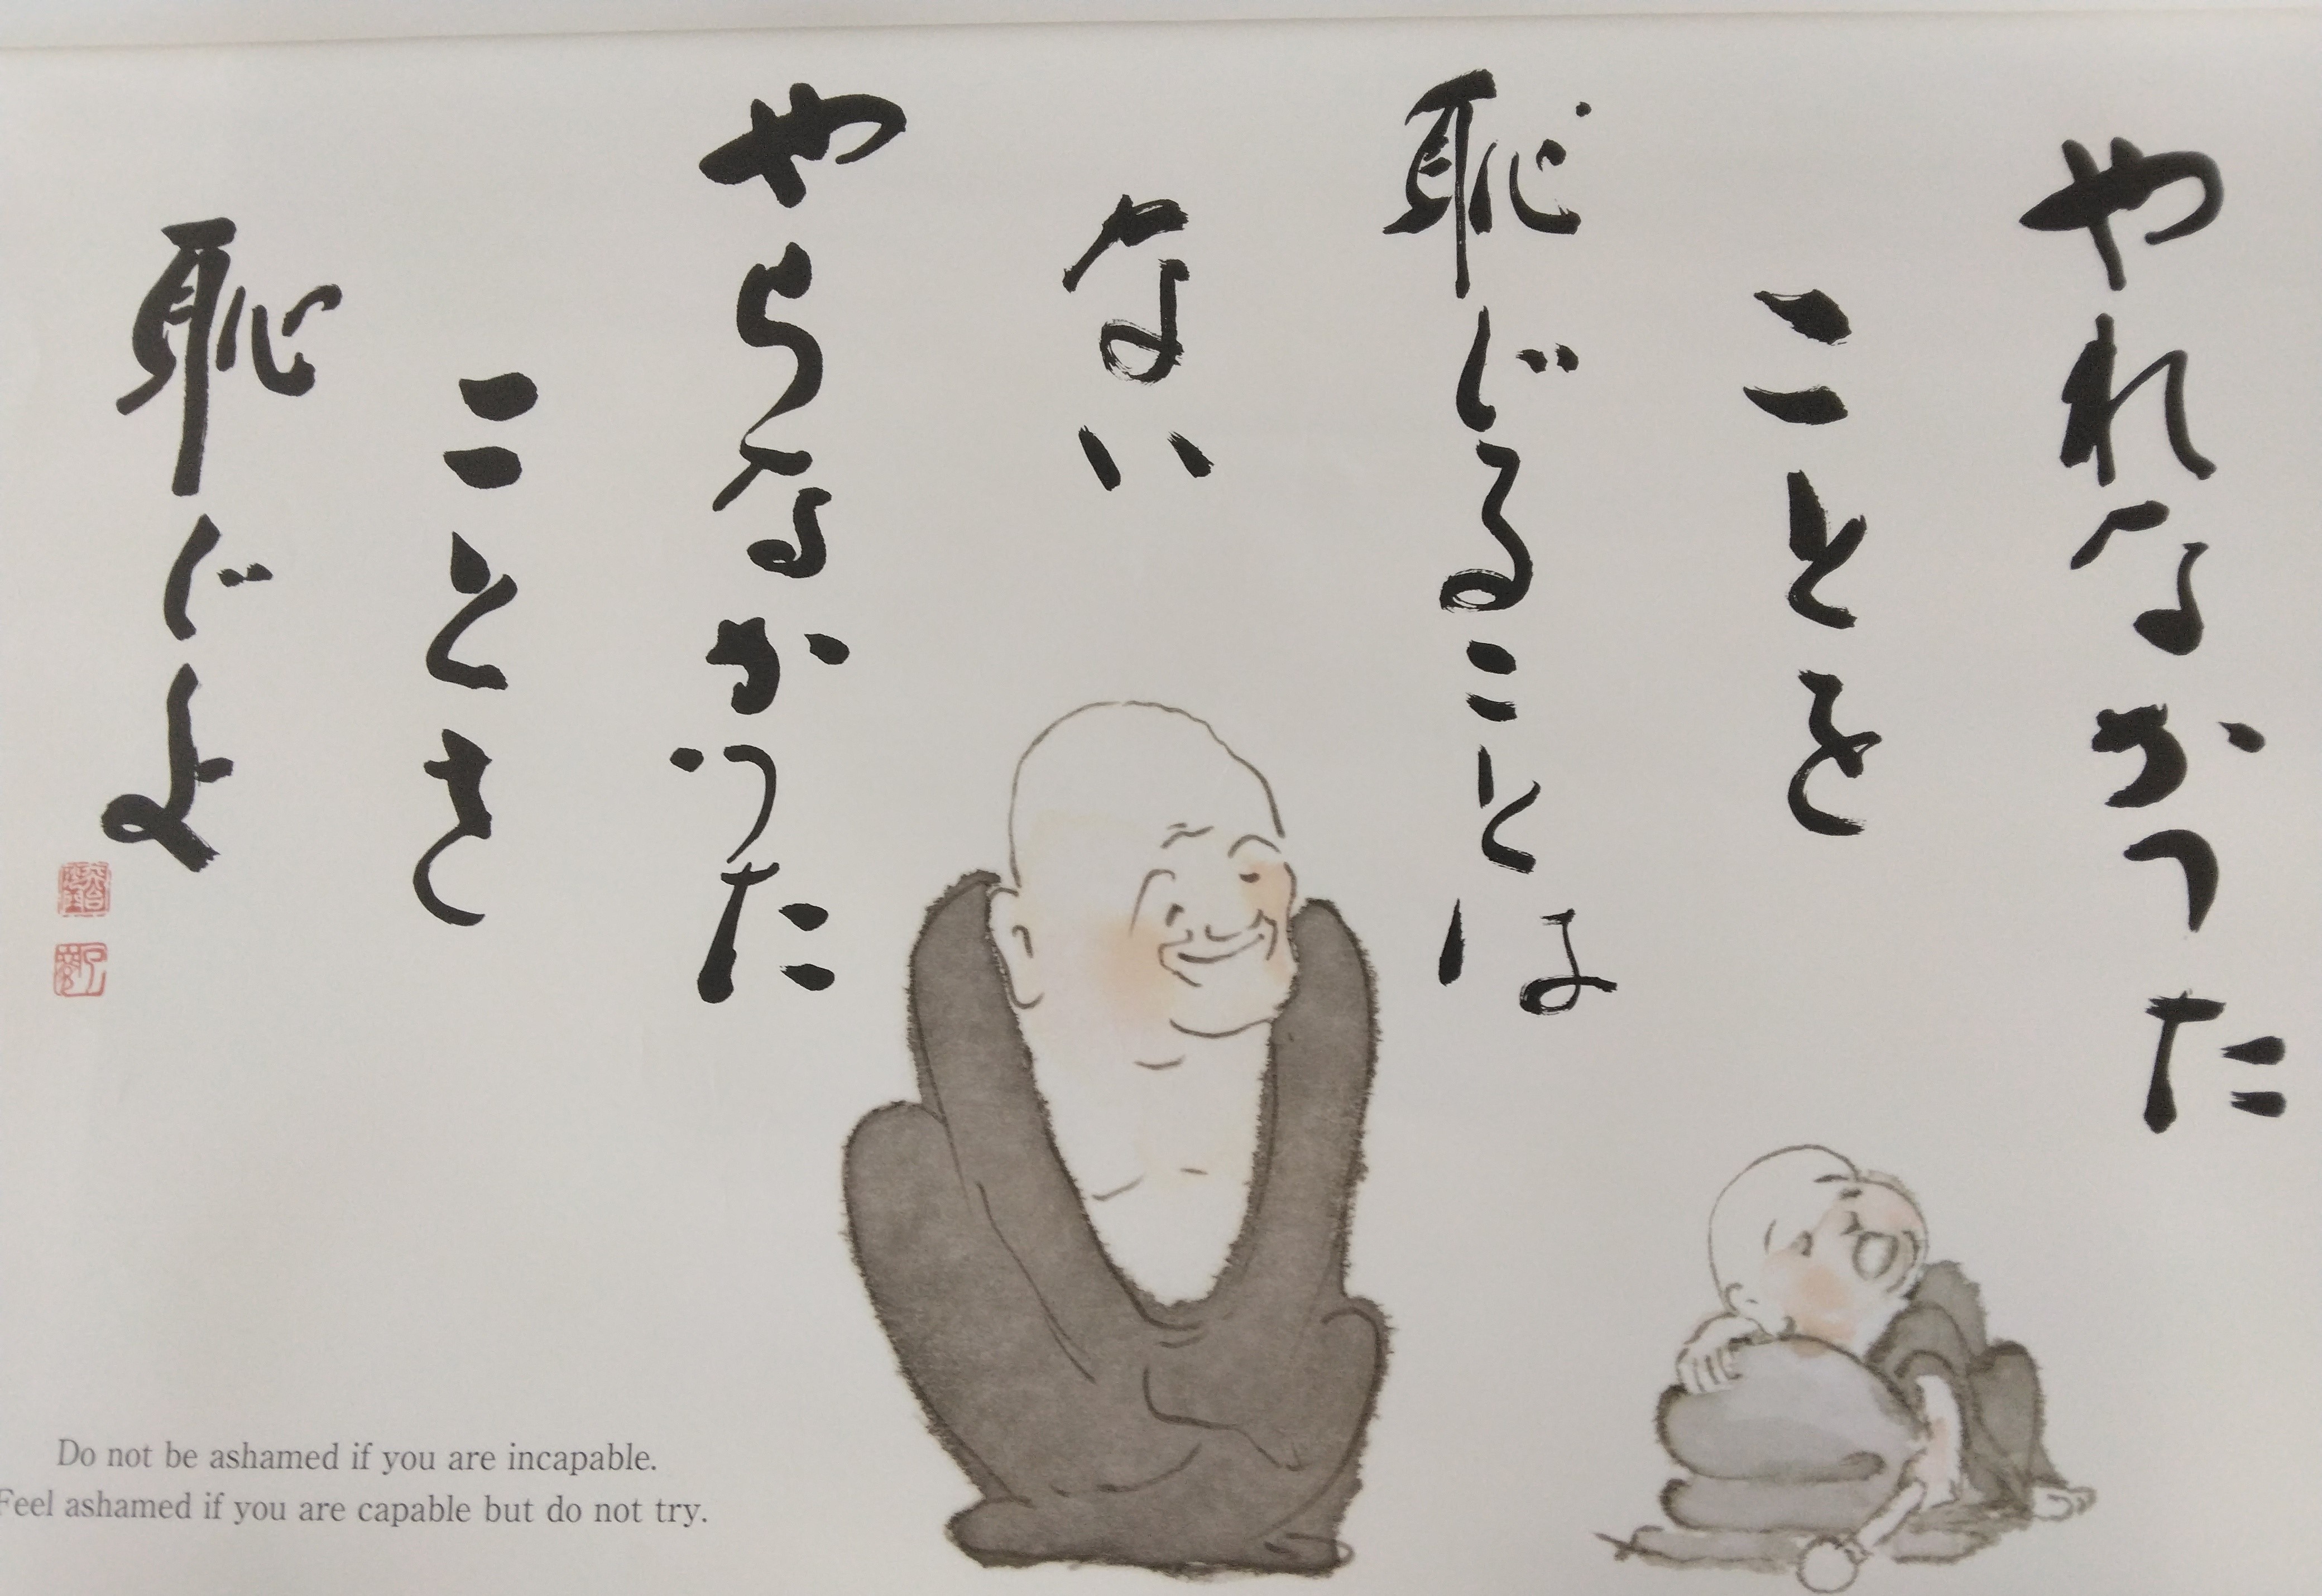 やれなかった
ことを
恥じることは
ない
やらなかった
ことを
恥じよ
Do not be ashamed if you are incapable.
Feel ashamed if you are capable but do not try.